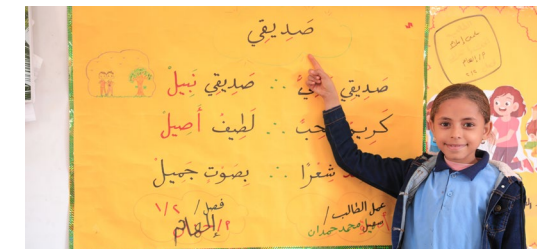 صَدِيقِي
صَدِيقِي ∴ صَدِيقِي نَبِيلْ
كَرِيم حب ∴ لَطِيفْ أَصِيلْ
شِعْرًا ∴ بِصَوْتٍ جَمِيلْ
عمل الطالب / فصل / ١/٢
محمد حمدان أ/ إلهام